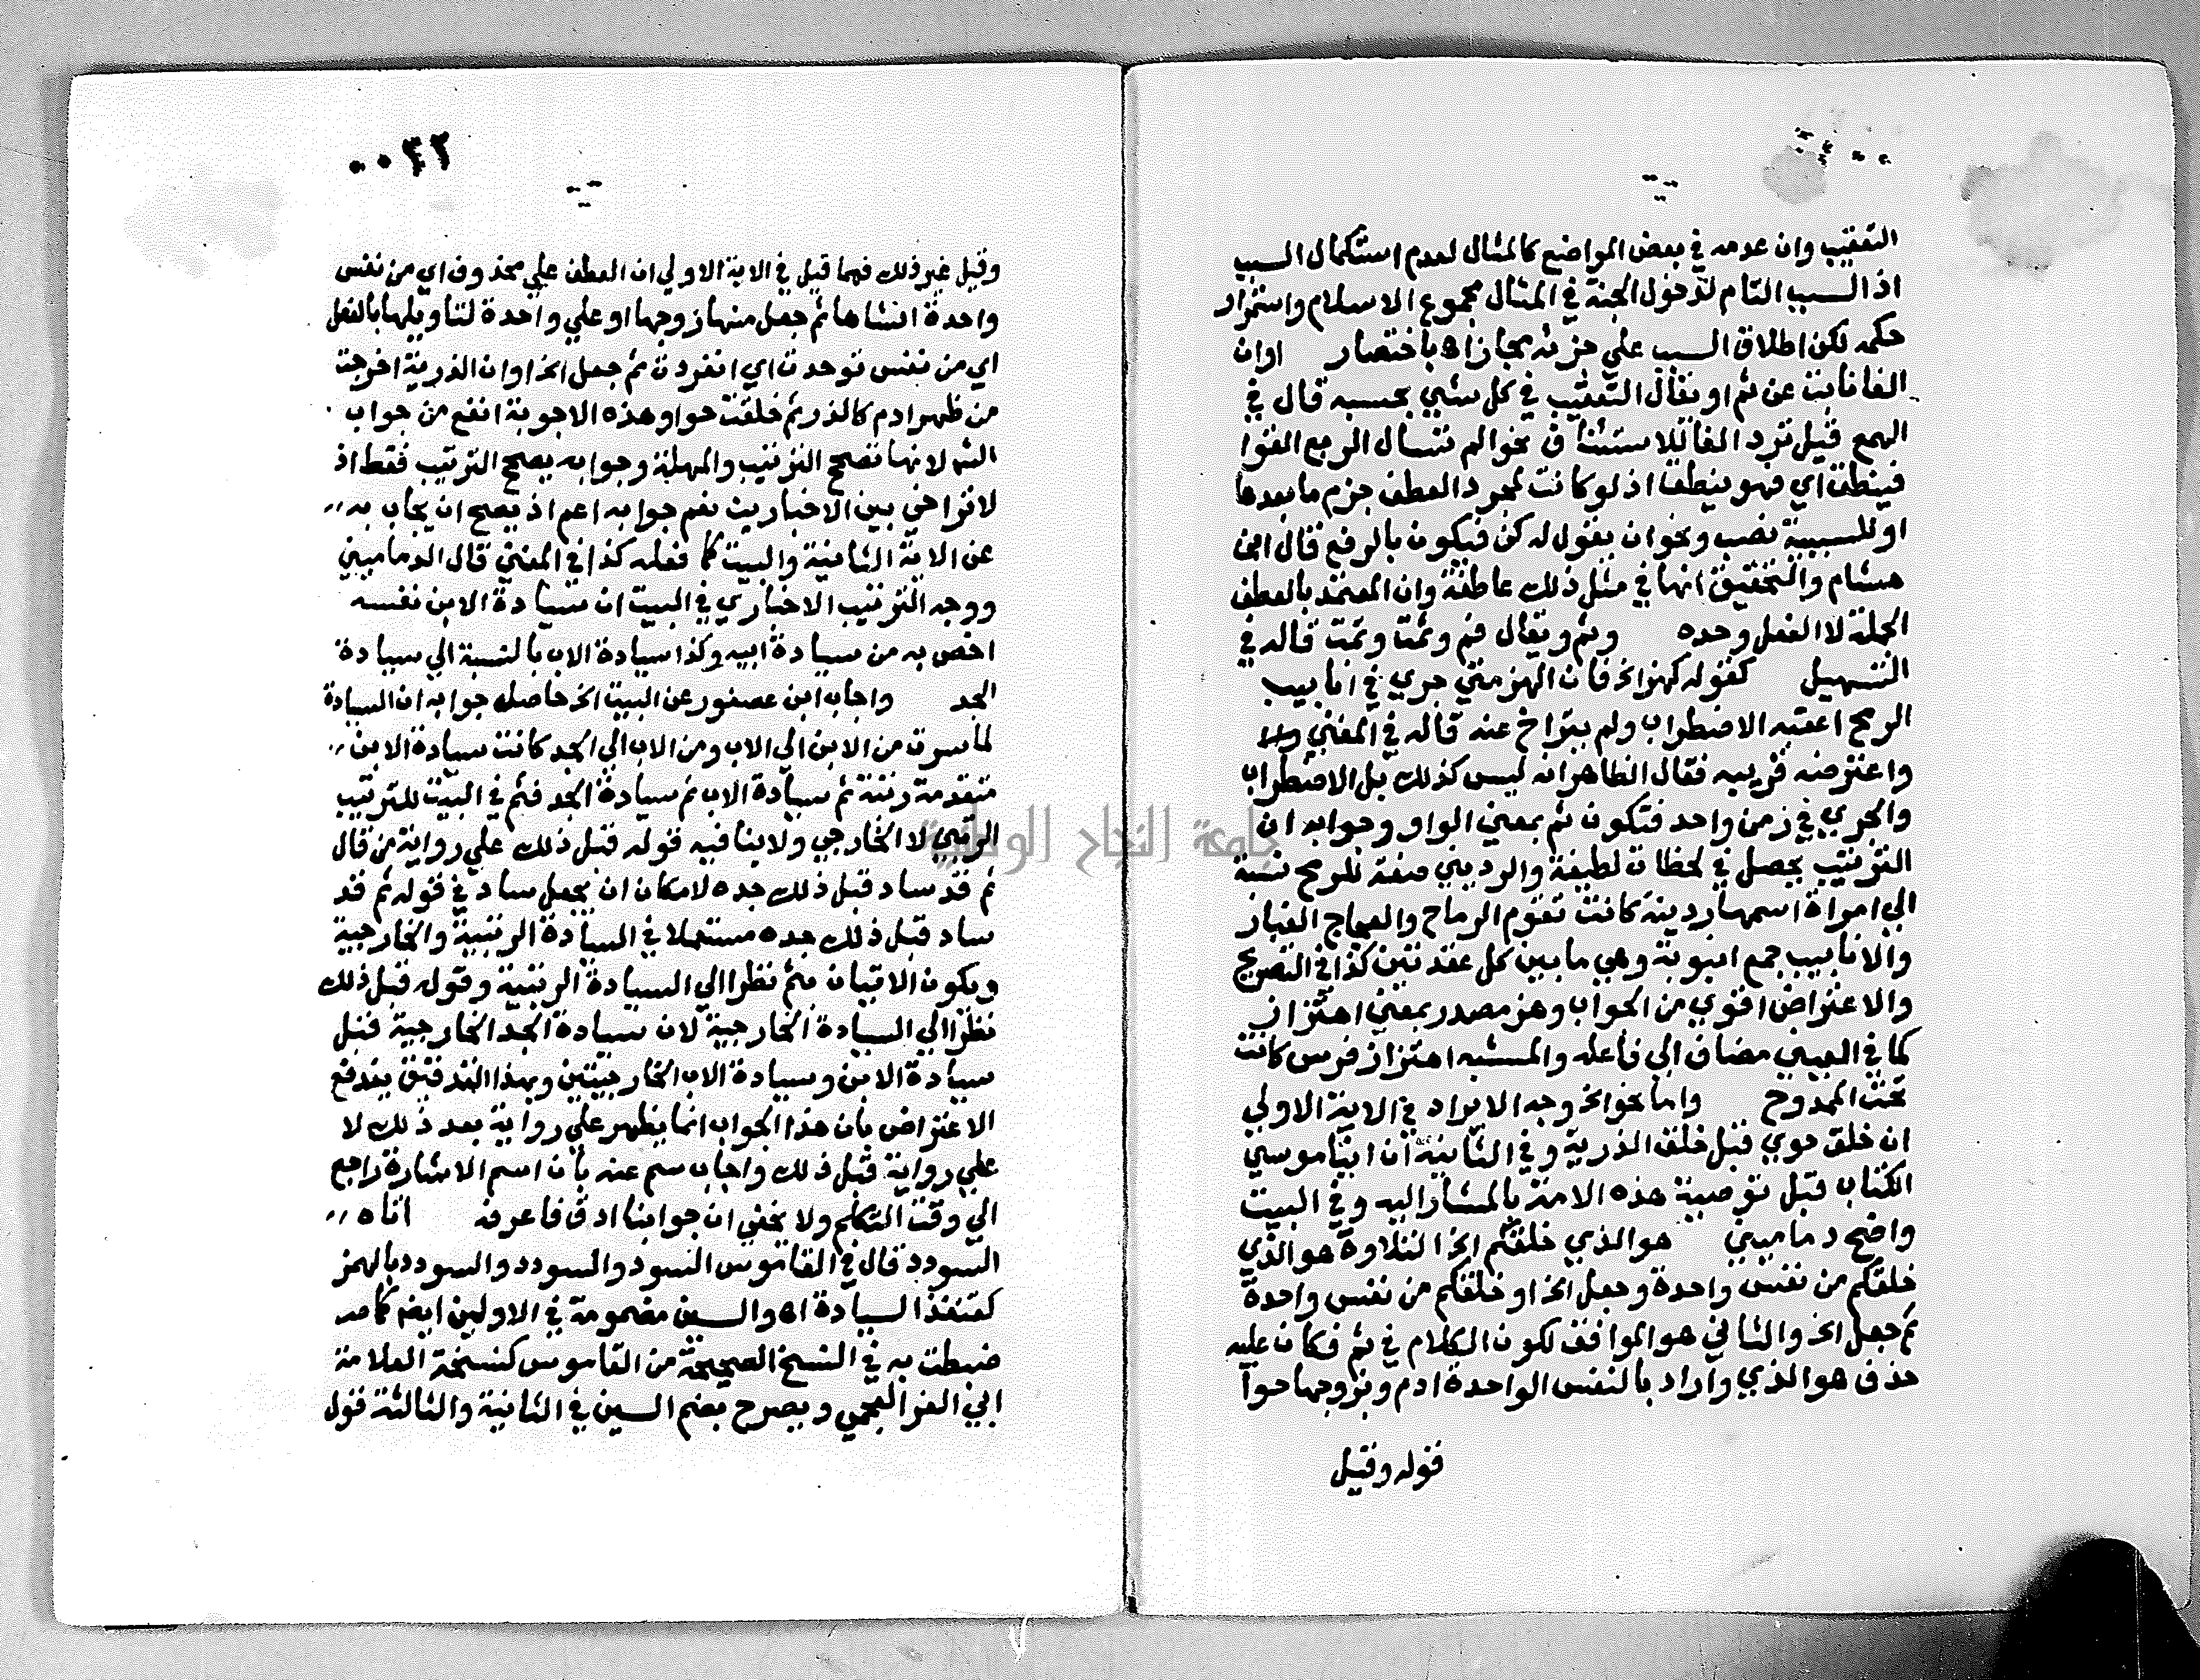 التعقيب وان عدمه في بعض المواضع كالمثال لعدم استكمال السبب
اذ السبب التام لدخول الجنة في المثال مجموع الاسلام واستمرار
حكمه لكن اطلاق السبب علي جزئه مجازا اه باختصار اوان
الفا نابت عن ثم او يقال التعقيب في كل شي بحسبه قال في
الهمع قيل ترد الفا للاستئناف نحو الم تسال الربع القوا
فينطق اي فهو ينطق اذ لو كانت لمجرد العطف جزم ما بعدها
او للسببية نصب ونحو ان يقول له كن فيكون بالرفع قال ابن
هشام والتحقيق انها في مثل ذلك عاطفة وان المعتمد بالعطف
الجملة لا الفعل وحده وثم ويقال فم وثمت وثمت قاله في
التسهيل كقوله كهز الخ فان الهز متي جري في انابيب
الرمح اعقبه الاضطراب ولم يتراخ عنه قاله في المغني
واعترضه قريبه فقال الظاهر انه ليس كذلك بل الاضطراب
والجري في زمن واحد فتكون ثم بمعني الواو وجوابه ان
الترتيب يحصل في لحظات لطيفة والرديني صفة للرمح نسبة
الي امراة اسمها ردينة كانت تقوم الرماح والعجاج الغبار
والانابيب جمع انبوبة وهي ما بين كل عقدتين كذا في التصريح
والاعتراض اقوي من الجواب وهز مصدر بمعني اهتزاز
كما في العيني مضاف الي فاعله والمشبه اهتزاز فرس كانت
تحت الممدوح واما نحو الخ وجه الايراد في الاية الاولي
ان خلق حوي قبل خلق الذرية وفي الثانية ان ايتا موسي
الكتاب قبل توصية هذه الامة بالمشار اليه وفي البيت
واضح دماميني هو الذي خلقكم الخ التلاوة هو الذي
خلقكم من نفس واحدة وجعل الخ او خلقكم من نفس واحدة
ثم جعل الخ والثاني هو الموافق لكون الكلام في ثم فكان عليه
حذف هو الذي واراد بالنفس الواحدة ادم وبزوجها حوا
قوله وقيل
٠٠٣٢
وقيل غير ذلك فمما قيل في الاية الاولي ان العطف علي محذوف اي من نفس
واحدة انشاها ثم جعل منها زوجها او علي واحدة لتاويلها بالفعل
اي من نفس توحدت اي انفردت ثم جعل الخ او ان الذرية اخرجت
من ظهر ادم كالذر ثم خلقت حوا وهذه الاجوبة انفع من جواب
الشم لانها تصحح الترتيب والمهلة وجوابه يصحح الترتيب فقط اذ
لا تراخي بين الاخبارين نعم جوابه اعم اذ يصح ان يجاب به
عن الاية الثانية والبيت كما فعله كذا في المغني قال الدماميني
ووجه الترتيب الاخباري في البيت ان سيادة الابن نفسه
اخص به من سيادة ابيه وكذا سيادة الاب بالنسبة الي سيادة
الجد واجاب ابن عصفور عن البيت الخ حاصله جوابه ان السيادة
لما سرت من الابن الي الاب ومن الاب الي الجد كانت سيادة الابن
متقدمة رتبة ثم سيادة الاب ثم سيادة الجد فثم في البيت للترتيب
الرتبي لا الخارجي ولا ينافيه قوله قبل ذلك علي رواية من قال
ثم قد ساد قبل ذلك جده لامكان ان يجعل ساد في قوله ثم قد
ساد قبل ذلك جده مستعملا في السيادة الرتبية والخارجية
ويكون الاتيان بثم نظرا الي السيادة الرتبية وقوله قبل ذلك
نظرا الي السيادة الخارجية لان سيادة الجد الخارجية قبل
سيادة الابن وسيادة الاب الخارجيتين وبهذا التدقيق يندفع
الاعتراض بان هذا الجواب انما يظهر علي رواية بعد ذلك لا
علي رواية قبل ذلك واجاب سم عنه بان اسم الاشارة راجع
الي وقت التكلم ولا يخفي ان جوابنا ادق فاعرفه اتاه
السودد قال في القاموس السود والسودد والسودد بالهمز
كقنفذ السيادة اه والسين مضمومة في الاولين ايضم كما مد
ضبطت به في النسخ الصحيحة من القاموس كنسخة العلامة
ابي العز العجمي ويصرح بضم السين في الثانية والثالثة قول
جامعة النجاح الوطنية